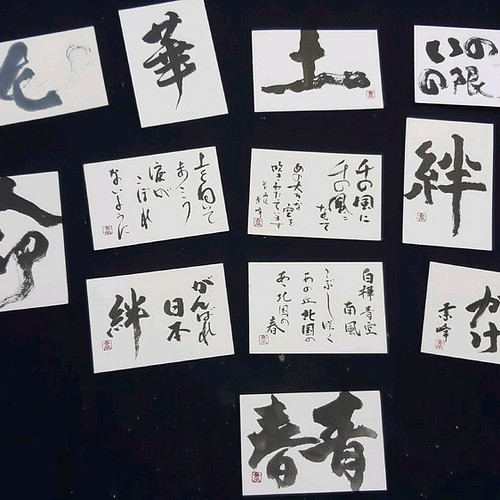 華
土
いの
の限
上を向いて
あるこう
涙が
こぼれ
ないように
千の風に
千の風に
なって
あの大きな空を
吹きわたっています
絆
がんばれ
日本
絆
白樺青空
南風
こぶし咲く
あの丘北国の
あゝ北国の
春
かけ
青春